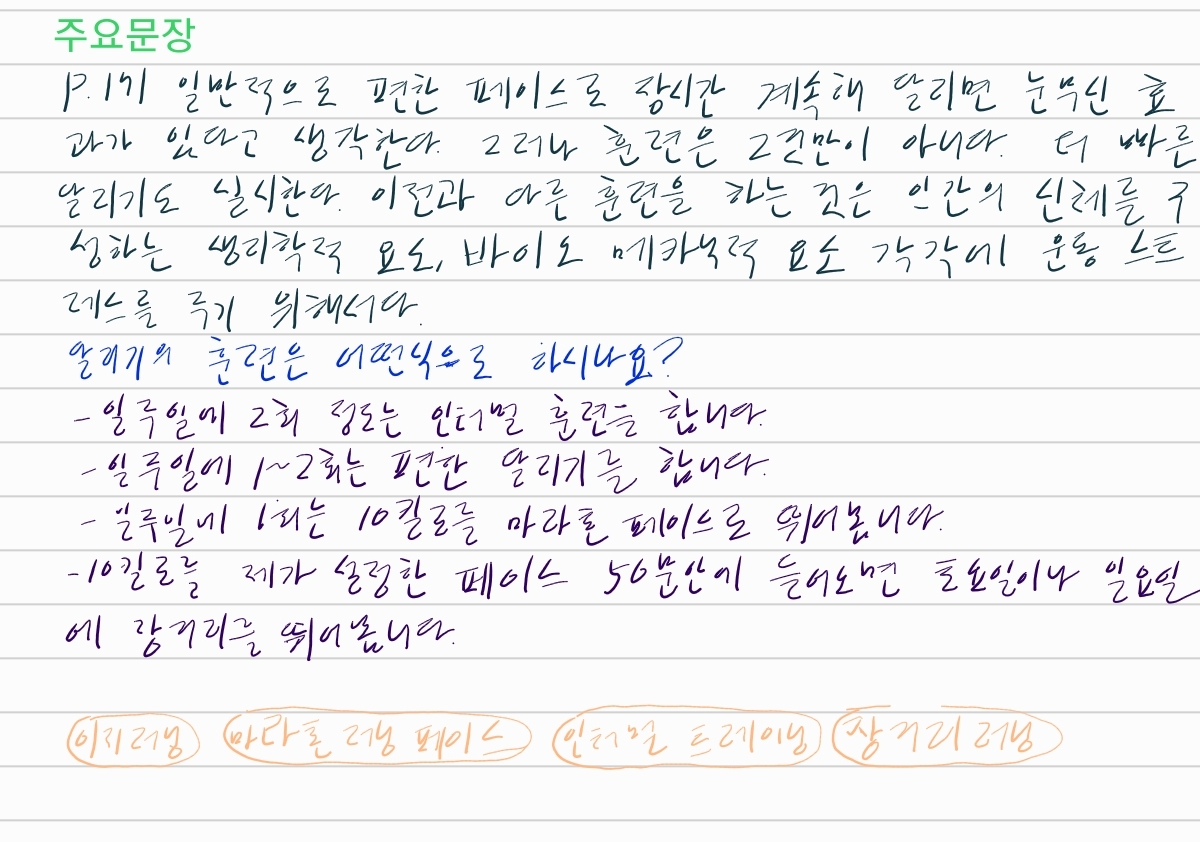 주요문장
P.171 일반적으로 편한 페이스로 장시간 계속해 달리면 눈부신 효
과가 있다고 생각한다. 그러나 훈련은 그것만이 아니다. 더 빠른
달리기도 실시한다. 이전과 다른 훈련을 하는 것은 인간의 신체를 구
성하는 생리학적 요소, 바이오 메카닉적 요소 각각에 운동 스트
레스를 주기 위해서다.
달리기의 훈련은 어떤식으로 하시나요?
- 일주일에 2회 정도는 인터벌 훈련을 합니다.
- 일주일에 1~2회는 편한 달리기를 합니다.
- 일주일에 1회는 10킬로를 마라톤 페이스로 뛰어봅니다.
- 10킬로를 제가 설정한 페이스 50분안에 들어오면 토요일이나 일요일
에 장거리를 뛰어봅니다.
이지러닝 마라톤 러닝 페이스 인터벌 트레이닝 장거리 러닝